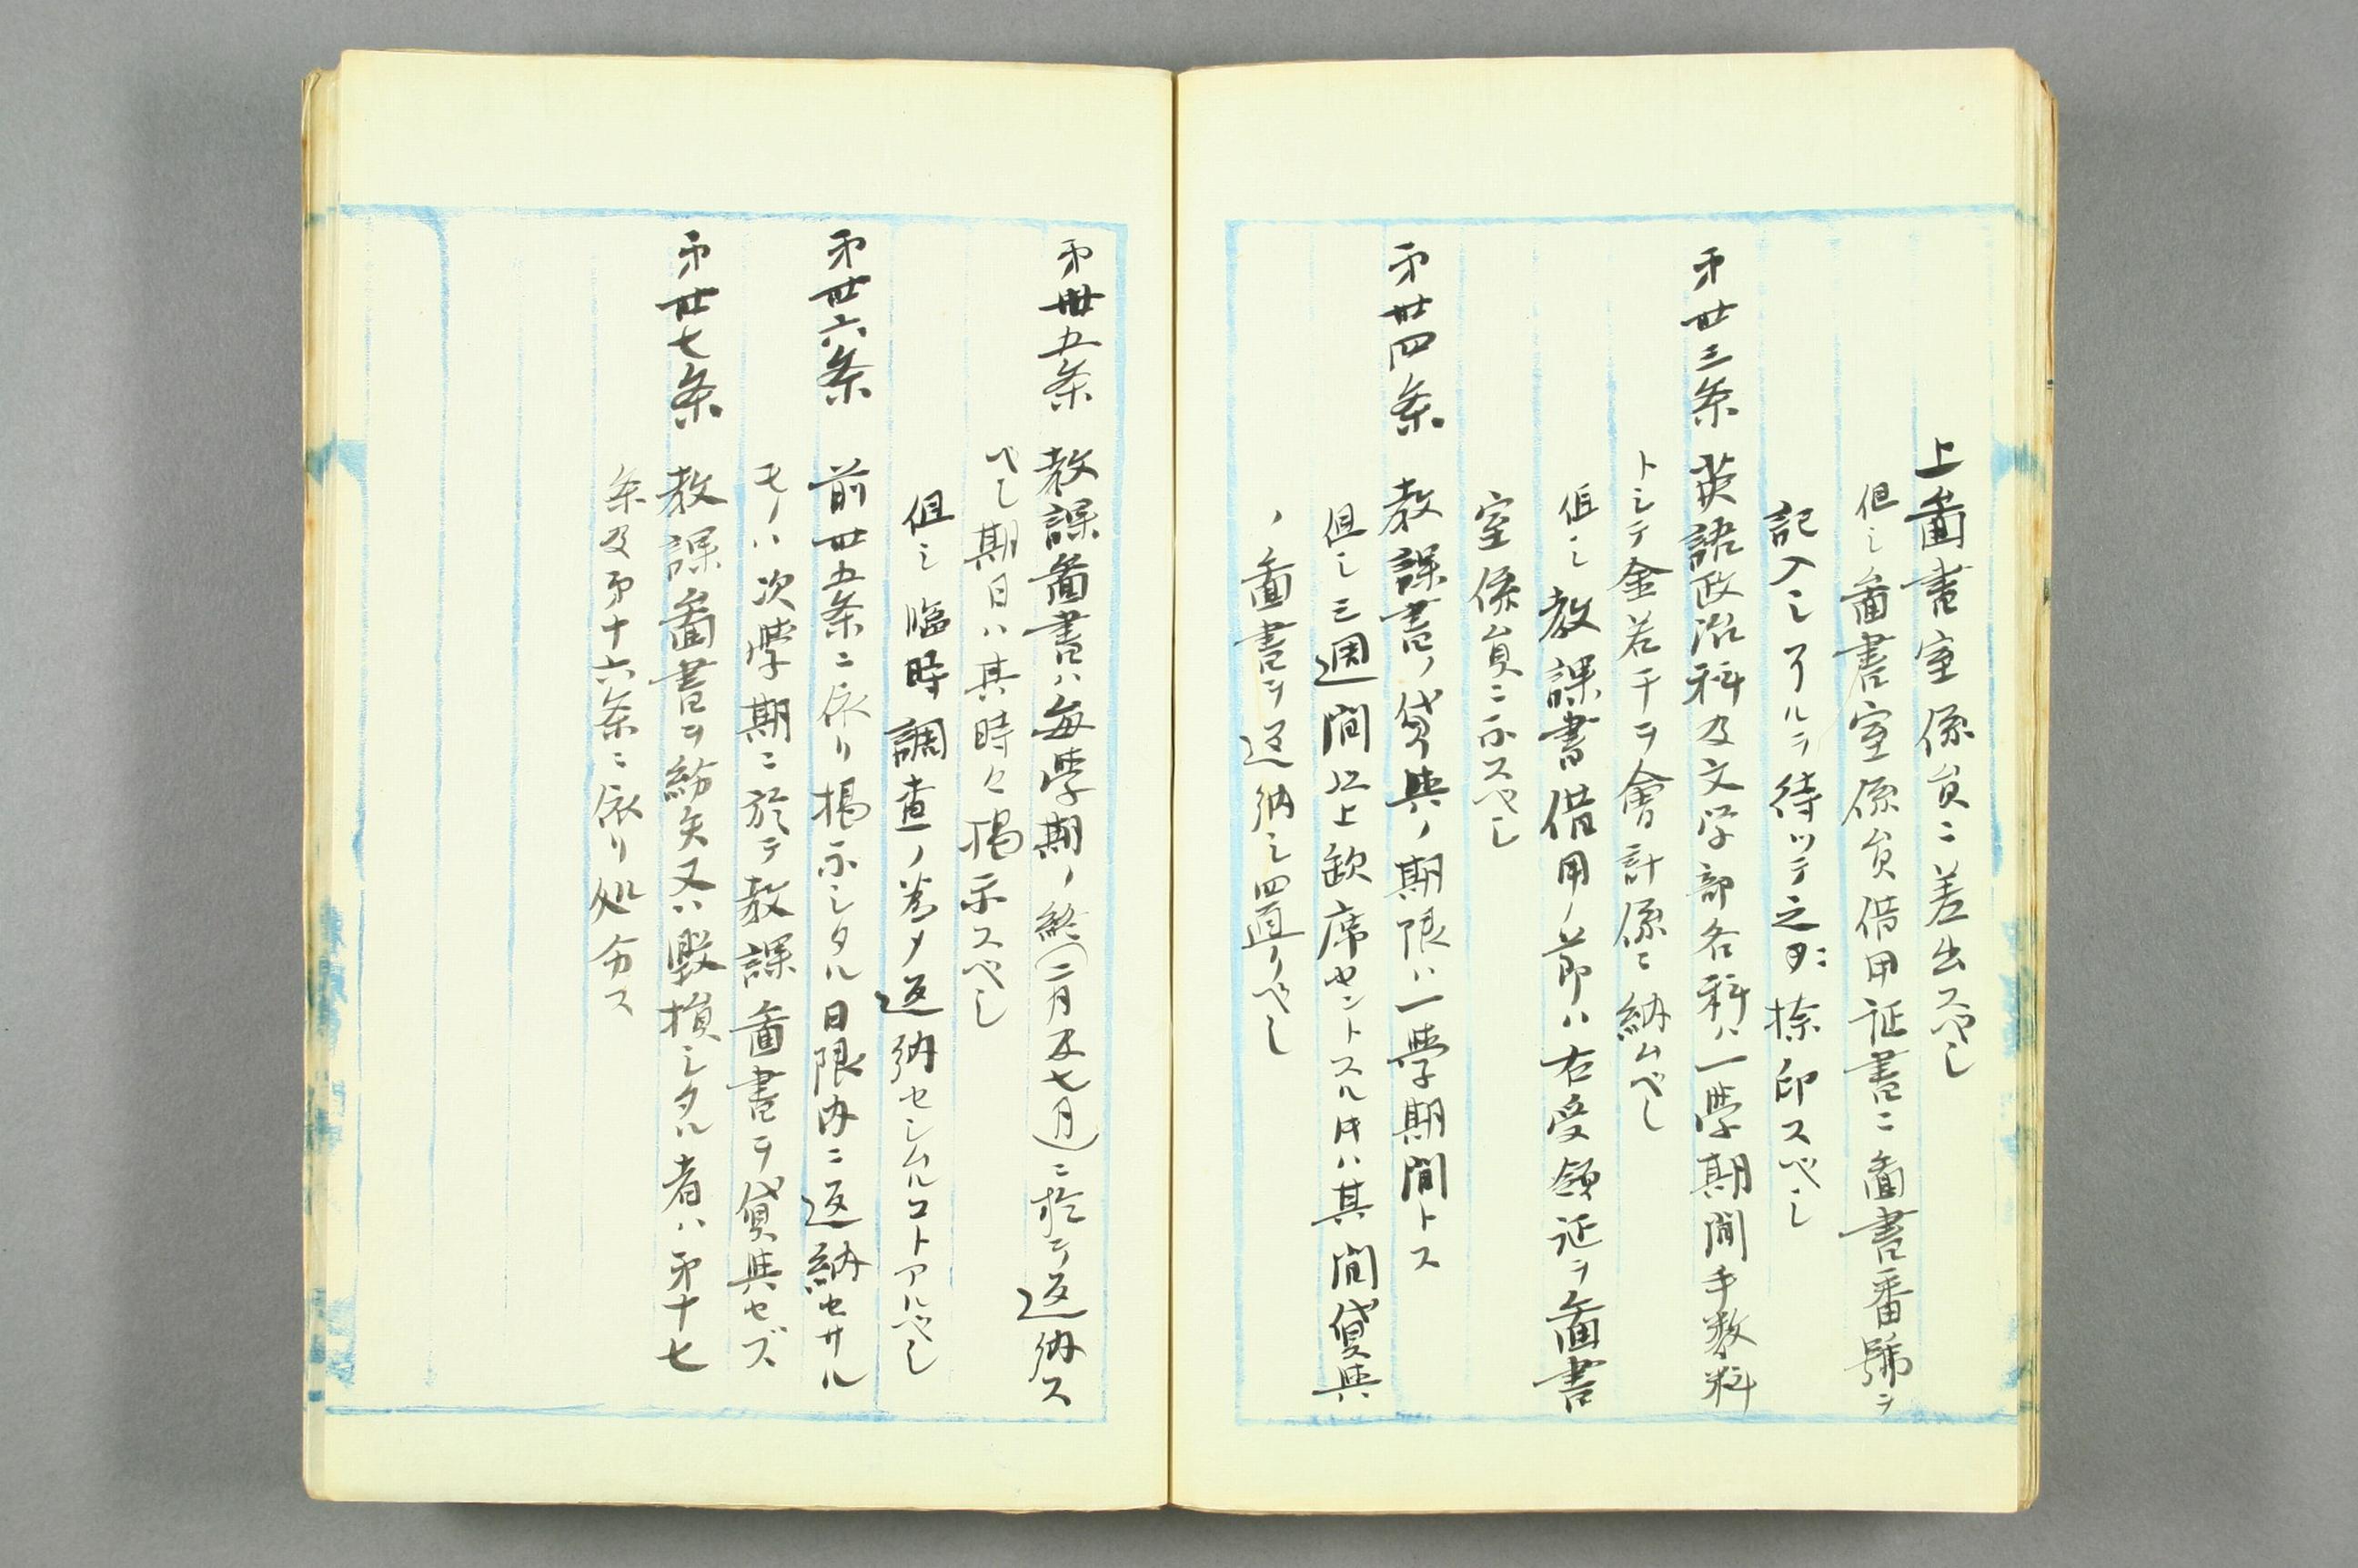 上圖書室係員ニ差出スべし
但し圖書室係員借用証書ニ圖書番號ヲ
記入しアルヲ待ツテ之ヲ捺印スべし
第卅三条 英語政治科及文学部各科ハ一學期間手数料
トシテ金若干ヲ會計係ニ納ムべし
但し教課書借用ノ節ハ右受領証ヲ圖書
室係員ニ示スべし
第卅四条 教課書ノ貸與ノ期限ハ一學期間トス
但し三週間以上欽席セントスル時ハ其間貸與
ノ圖書ヲ返納し置クべし
第卅五条 教課圖書ハ毎學期ノ終(二月及七月)ニ於テ返納ス
べし期日ハ其時々揭示スべし
但し臨時調査ノ為メ返納セシムルコトアルべし
第卅六条 前卅五条ニ依リ揭示シタル日限内ニ返納セサル
モノハ次學期ニ於テ教課圖書ヲ貸與セズ
第卅七条 教課圖書ヲ紛失又ハ毀損シタル者ハ第十七
条及第十六条ニ依リ処分ス